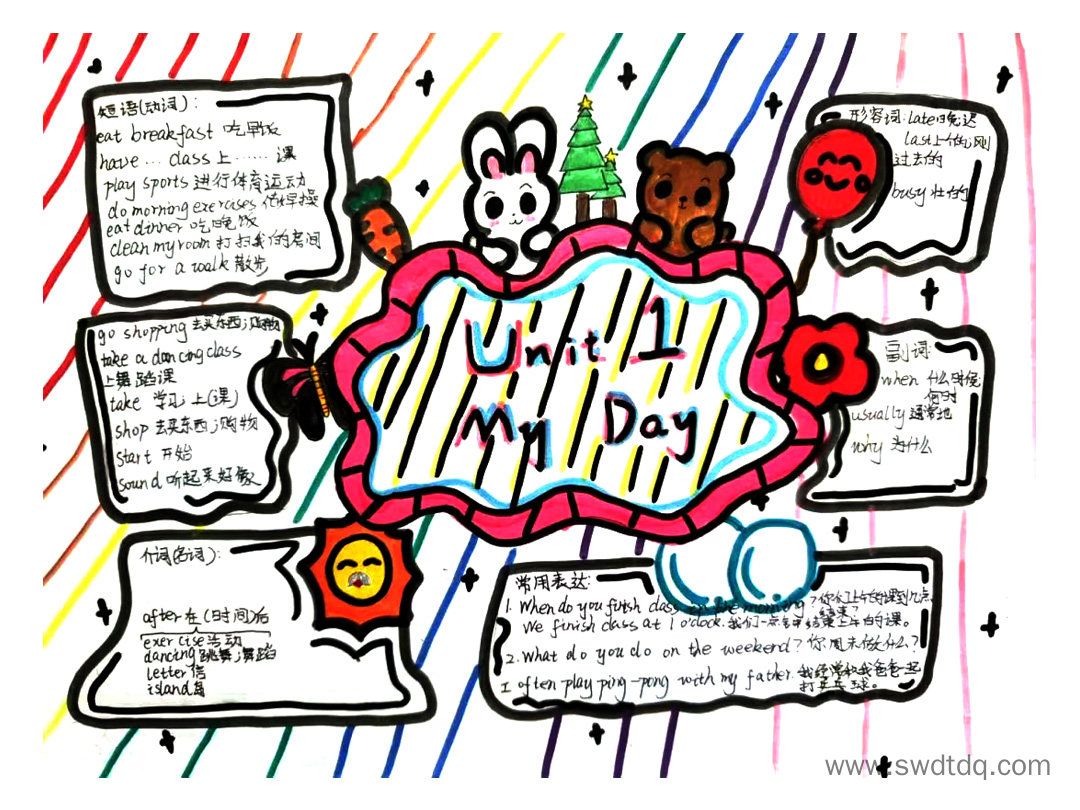 短语(动词):
eat breakfast 吃早饭
have ... class 上 …… 课
play sports 进行体育运动
do morning exercises 做早操
eat dinner 吃晚饭
clean my room 打扫我的房间
go for a walk 散步
go shopping 去买东西;购物
take a dancing class
上舞蹈课
take 学习 上(课)
shop 去买东西;购物
start 开始
sound 听起来好像
介词(名词):
after 在(时间)后
exercise 活动
dancing 跳舞;舞蹈
letter 信
island 岛
Unit 1
My Day
形容词: late 晚;迟
last 上个的;刚
过去的
busy 忙的
副词:
when 什么时候
何时
usually 通常地
why 为什么
常用表达:
1. When do you finish class in the morning? 你们上午的课到几点
结束?
We finish class at 1 o'clock. 我们一点结束上午的课。
2. What do you do on the weekend? 你周末做什么?
I often play ping-pong with my father. 我经常和我爸爸一起
打乒乓球。
www.swdtdq.com